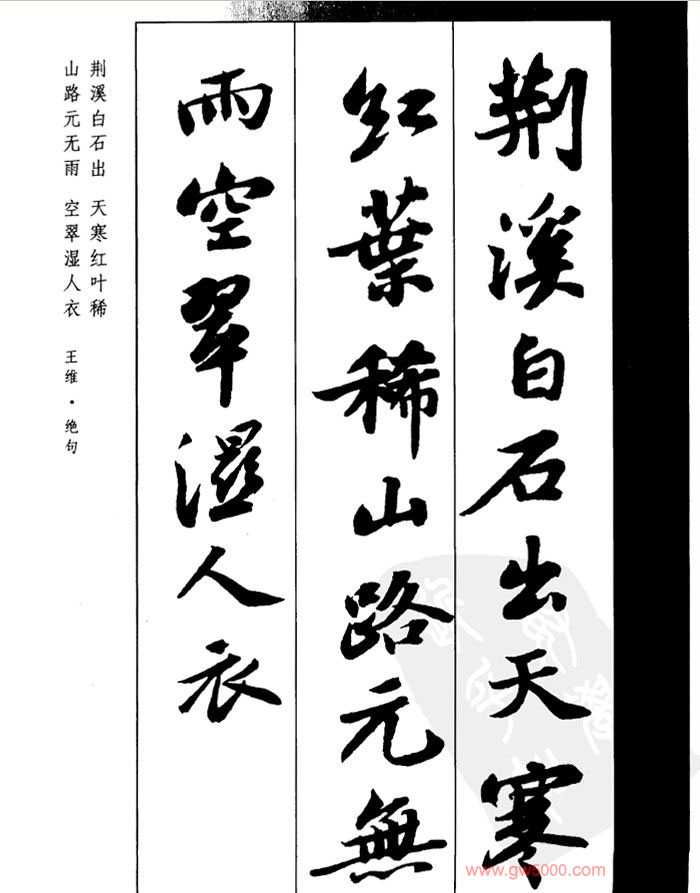 荆溪白石出天寒
红葉稀山路元無
雨空翠溼人衣
荆溪白石出 天寒红叶稀
山路元无雨 空翠湿人衣 王维·绝句
www.gw5000.com